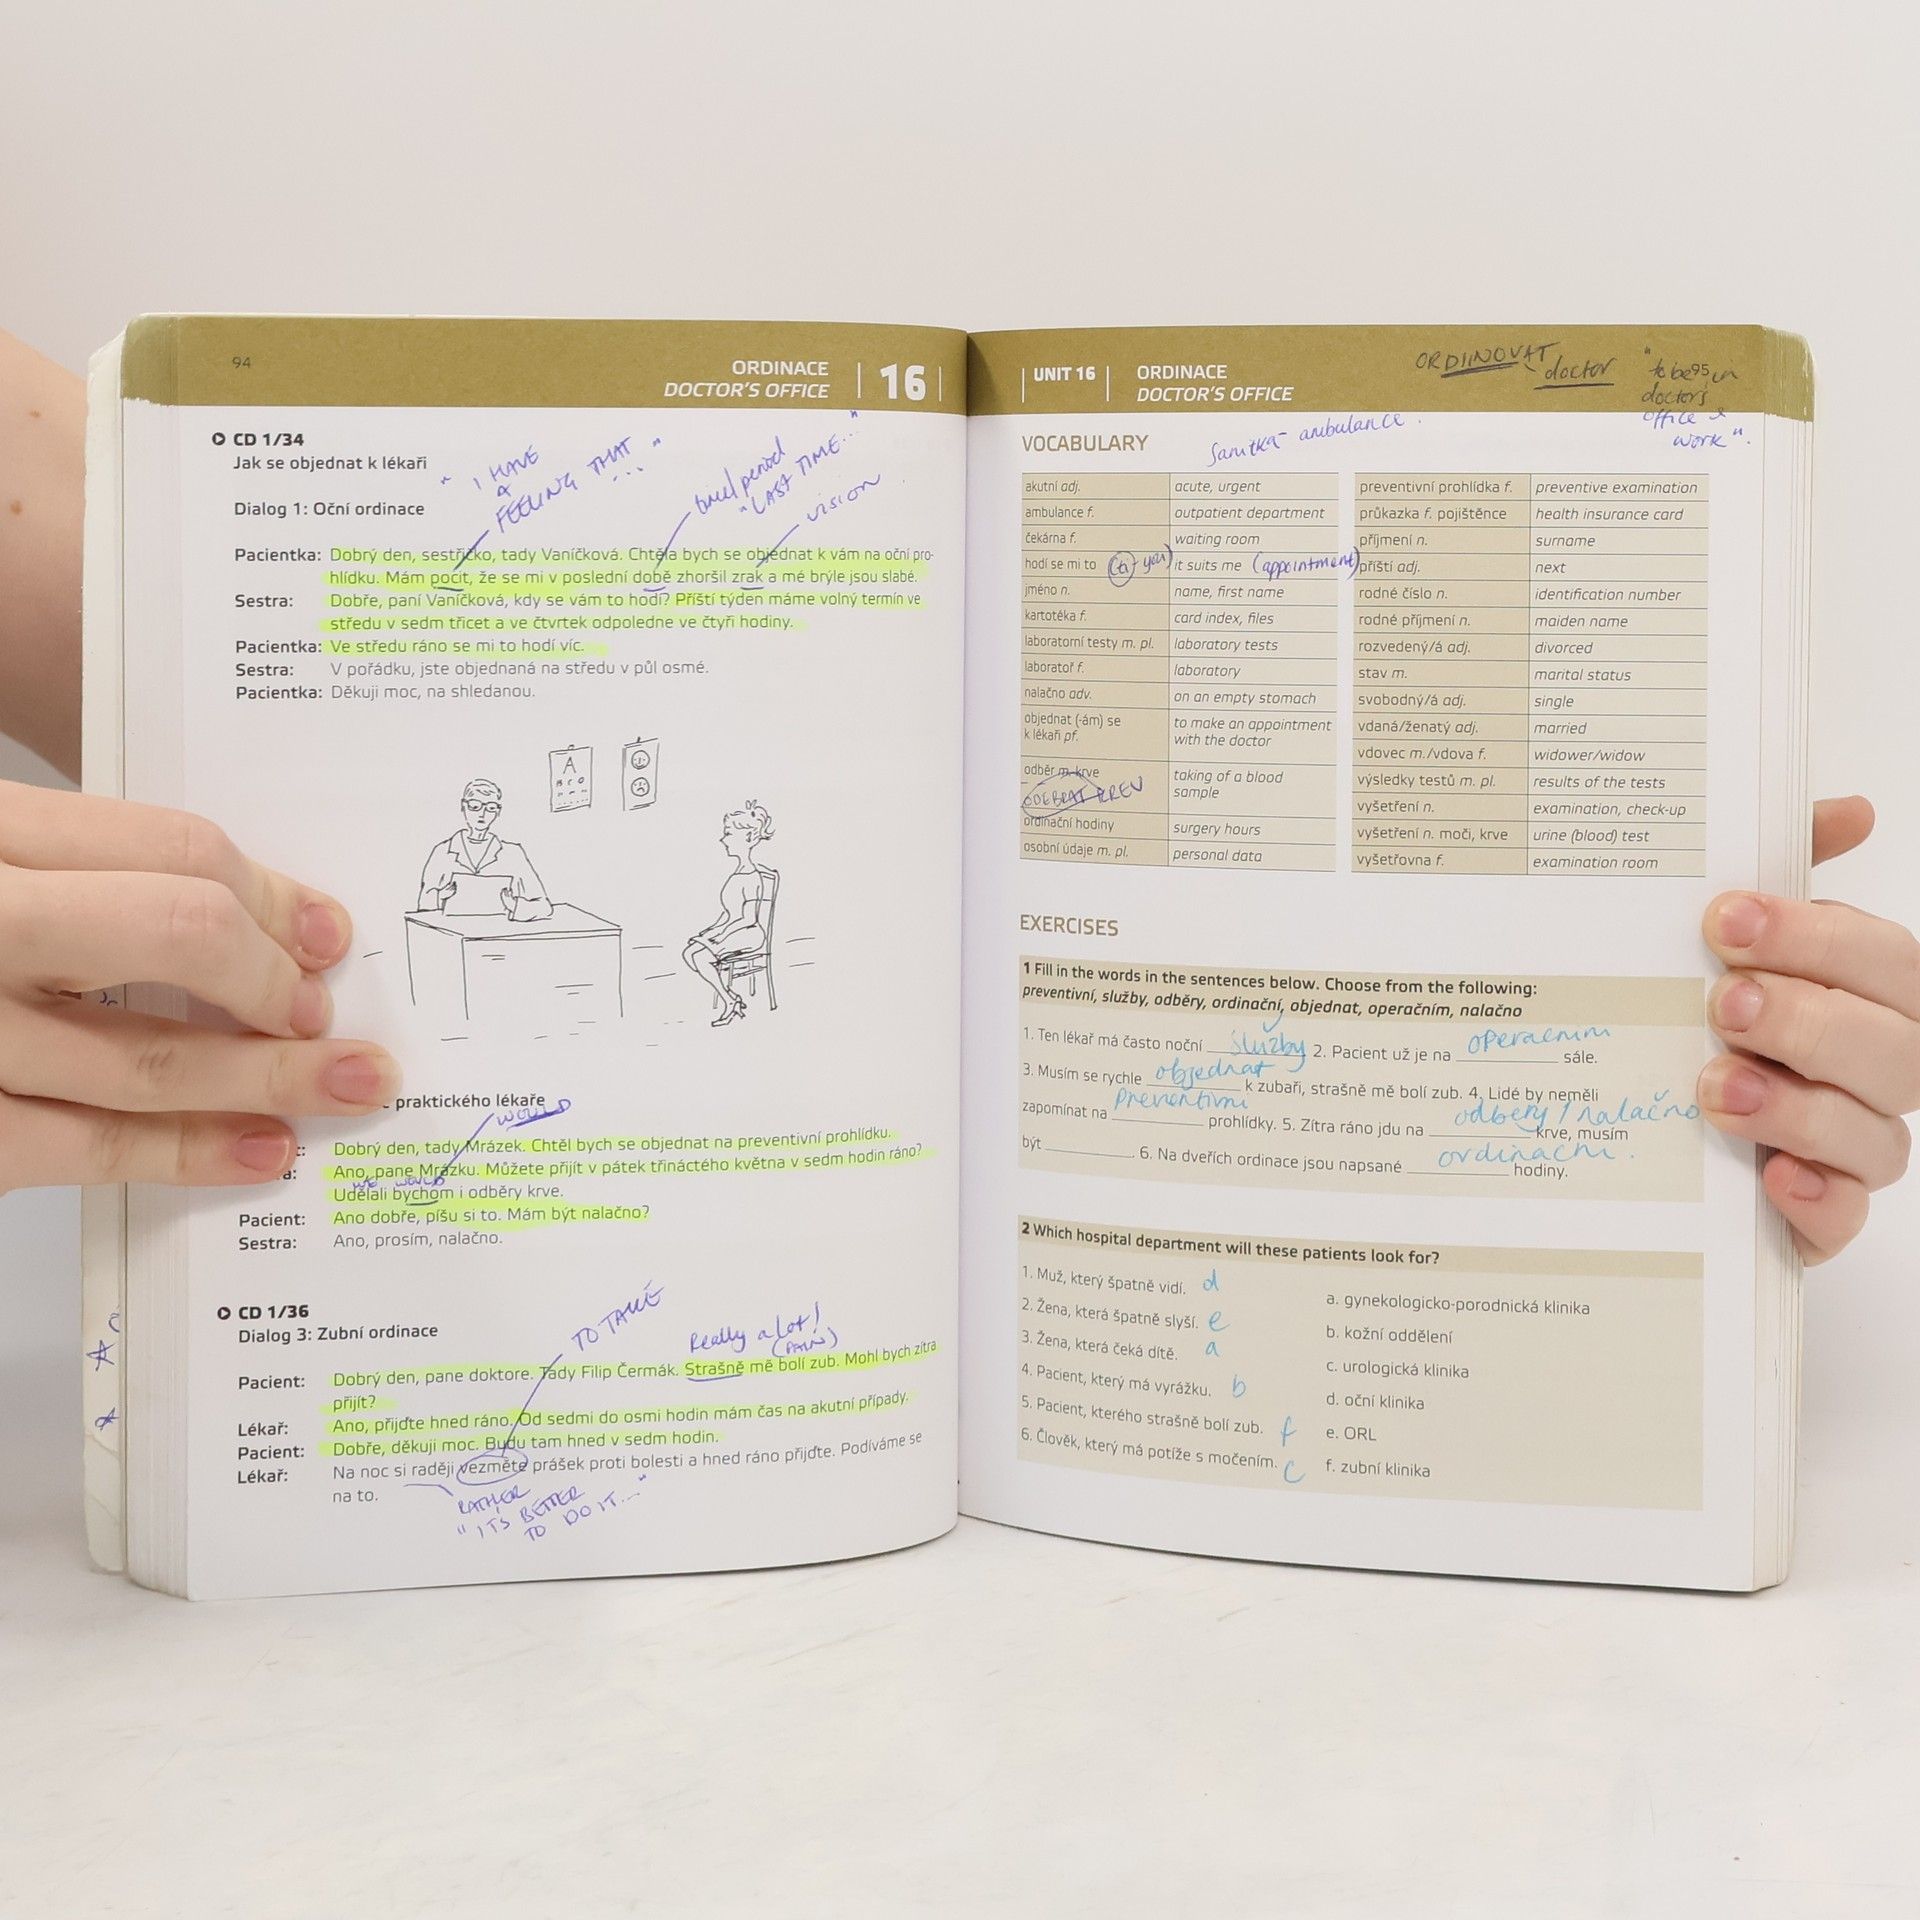 94
ORDINACE
DOCTOR'S OFFICE
16
CD 1/34
Jak se objednat k lékaři
Dialog 1: Oční ordinace
" I HAVE
A
FEELING THAT
... "
time/period
"LAST TIME..."
vision
Pacientka: Dobrý den, sestřičko, tady Vaníčková. Chtěla bych se objednat k vám na oční pro-
hlídku. Mám pocit, že se mi v poslední době zhoršil zrak a mé brýle jsou slabé.
Sestra: Dobře, paní Vaníčková, kdy se vám to hodí? Příští týden máme volný termín ve
středu v sedm třicet a ve čtvrtek odpoledne ve čtyři hodiny.
Pacientka: Ve středu ráno se mi to hodí víc.
Sestra: V pořádku, jste objednaná na středu v půl osmé.
Pacientka: Děkuji moc, na shledanou.
A
praktického lékaře
WOULD
Dobrý den, tady Mrázek. Chtěl bych se objednat na preventivní prohlídku.
Ano, pane Mrázku. Můžete přijít v pátek třináctého května v sedm hodin ráno?
WE WOULD
Udělali bychom i odběry krve.
Pacient: Ano dobře, píšu si to. Mám být nalačno?
Sestra: Ano, prosím, nalačno.
CD 1/36
Dialog 3: Zubní ordinace
TO TAKE
Really a lot!
(PAIN)
Pacient: Dobrý den, pane doktore. Tady Filip Čermák. Strašně mě bolí zub. Mohl bych zítra
přijít?
Lékař: Ano, přijďte hned ráno. Od sedmi do osmi hodin mám čas na akutní případy.
Pacient: Dobře, děkuji moc. Budu tam hned v sedm hodin.
Lékař: Na noc si raději vezměte prášek proti bolesti a hned ráno přijďte. Podíváme se
na to.
RATHER
"IT'S BETTER
TO DO IT..."
UNIT 16
ORDINACE
DOCTOR'S OFFICE
ORDIINOVAT
doctor
95
"to be in
doctor's
office &
work".
VOCABULARY
Sanitka - ambulance.
akutní adj. acute, urgent
ambulance f. outpatient department
čekárna f. waiting room
hodí se mi to (ti - you) it suits me (appointment)
jméno n. name, first name
kartotéka f. card index, files
laboratorní testy m. pl. laboratory tests
laboratoř f. laboratory
nalačno adv. on an empty stomach
objednat (-ám) se to make an appointment
k lékaři pf. with the doctor
odběr m. krve taking of a blood
sample
ODEBRAT KREV
ordinační hodiny surgery hours
osobní údaje m. pl. personal data
preventivní prohlídka f. preventive examination
průkazka f. pojištěnce health insurance card
příjmení n. surname
příští adj. next
rodné číslo n. identification number
rodné příjmení n. maiden name
rozvedený/á adj. divorced
stav m. marital status
svobodný/á adj. single
vdaná/ženatý adj. married
vdovec m./vdova f. widower/widow
výsledky testů m. pl. results of the tests
vyšetření n. examination, check-up
vyšetření n. moči, krve urine (blood) test
vyšetřovna f. examination room
EXERCISES
1 Fill in the words in the sentences below. Choose from the following:
preventivní, služby, odběry, ordinační, objednat, operačním, nalačno
1. Ten lékař má často noční služby 2. Pacient už je na operacnim sále.
3. Musím se rychle objednat k zubaři, strašně mě bolí zub. 4. Lidé by neměli
zapomínat na Preventivni prohlídky. 5. Zítra ráno jdu na odbery / nalačno krve, musím
být ____________. 6. Na dveřích ordinace jsou napsané ordinacni. hodiny.
2 Which hospital department will these patients look for?
1. Muž, který špatně vidí. d
2. Žena, která špatně slyší. e
3. Žena, která čeká dítě. a
4. Pacient, který má vyrážku. b
5. Pacient, kterého strašně bolí zub. f
6. Člověk, který má potíže s močením. c
a. gynekologicko-porodnická klinika
b. kožní oddělení
c. urologická klinika
d. oční klinika
e. ORL
f. zubní klinika